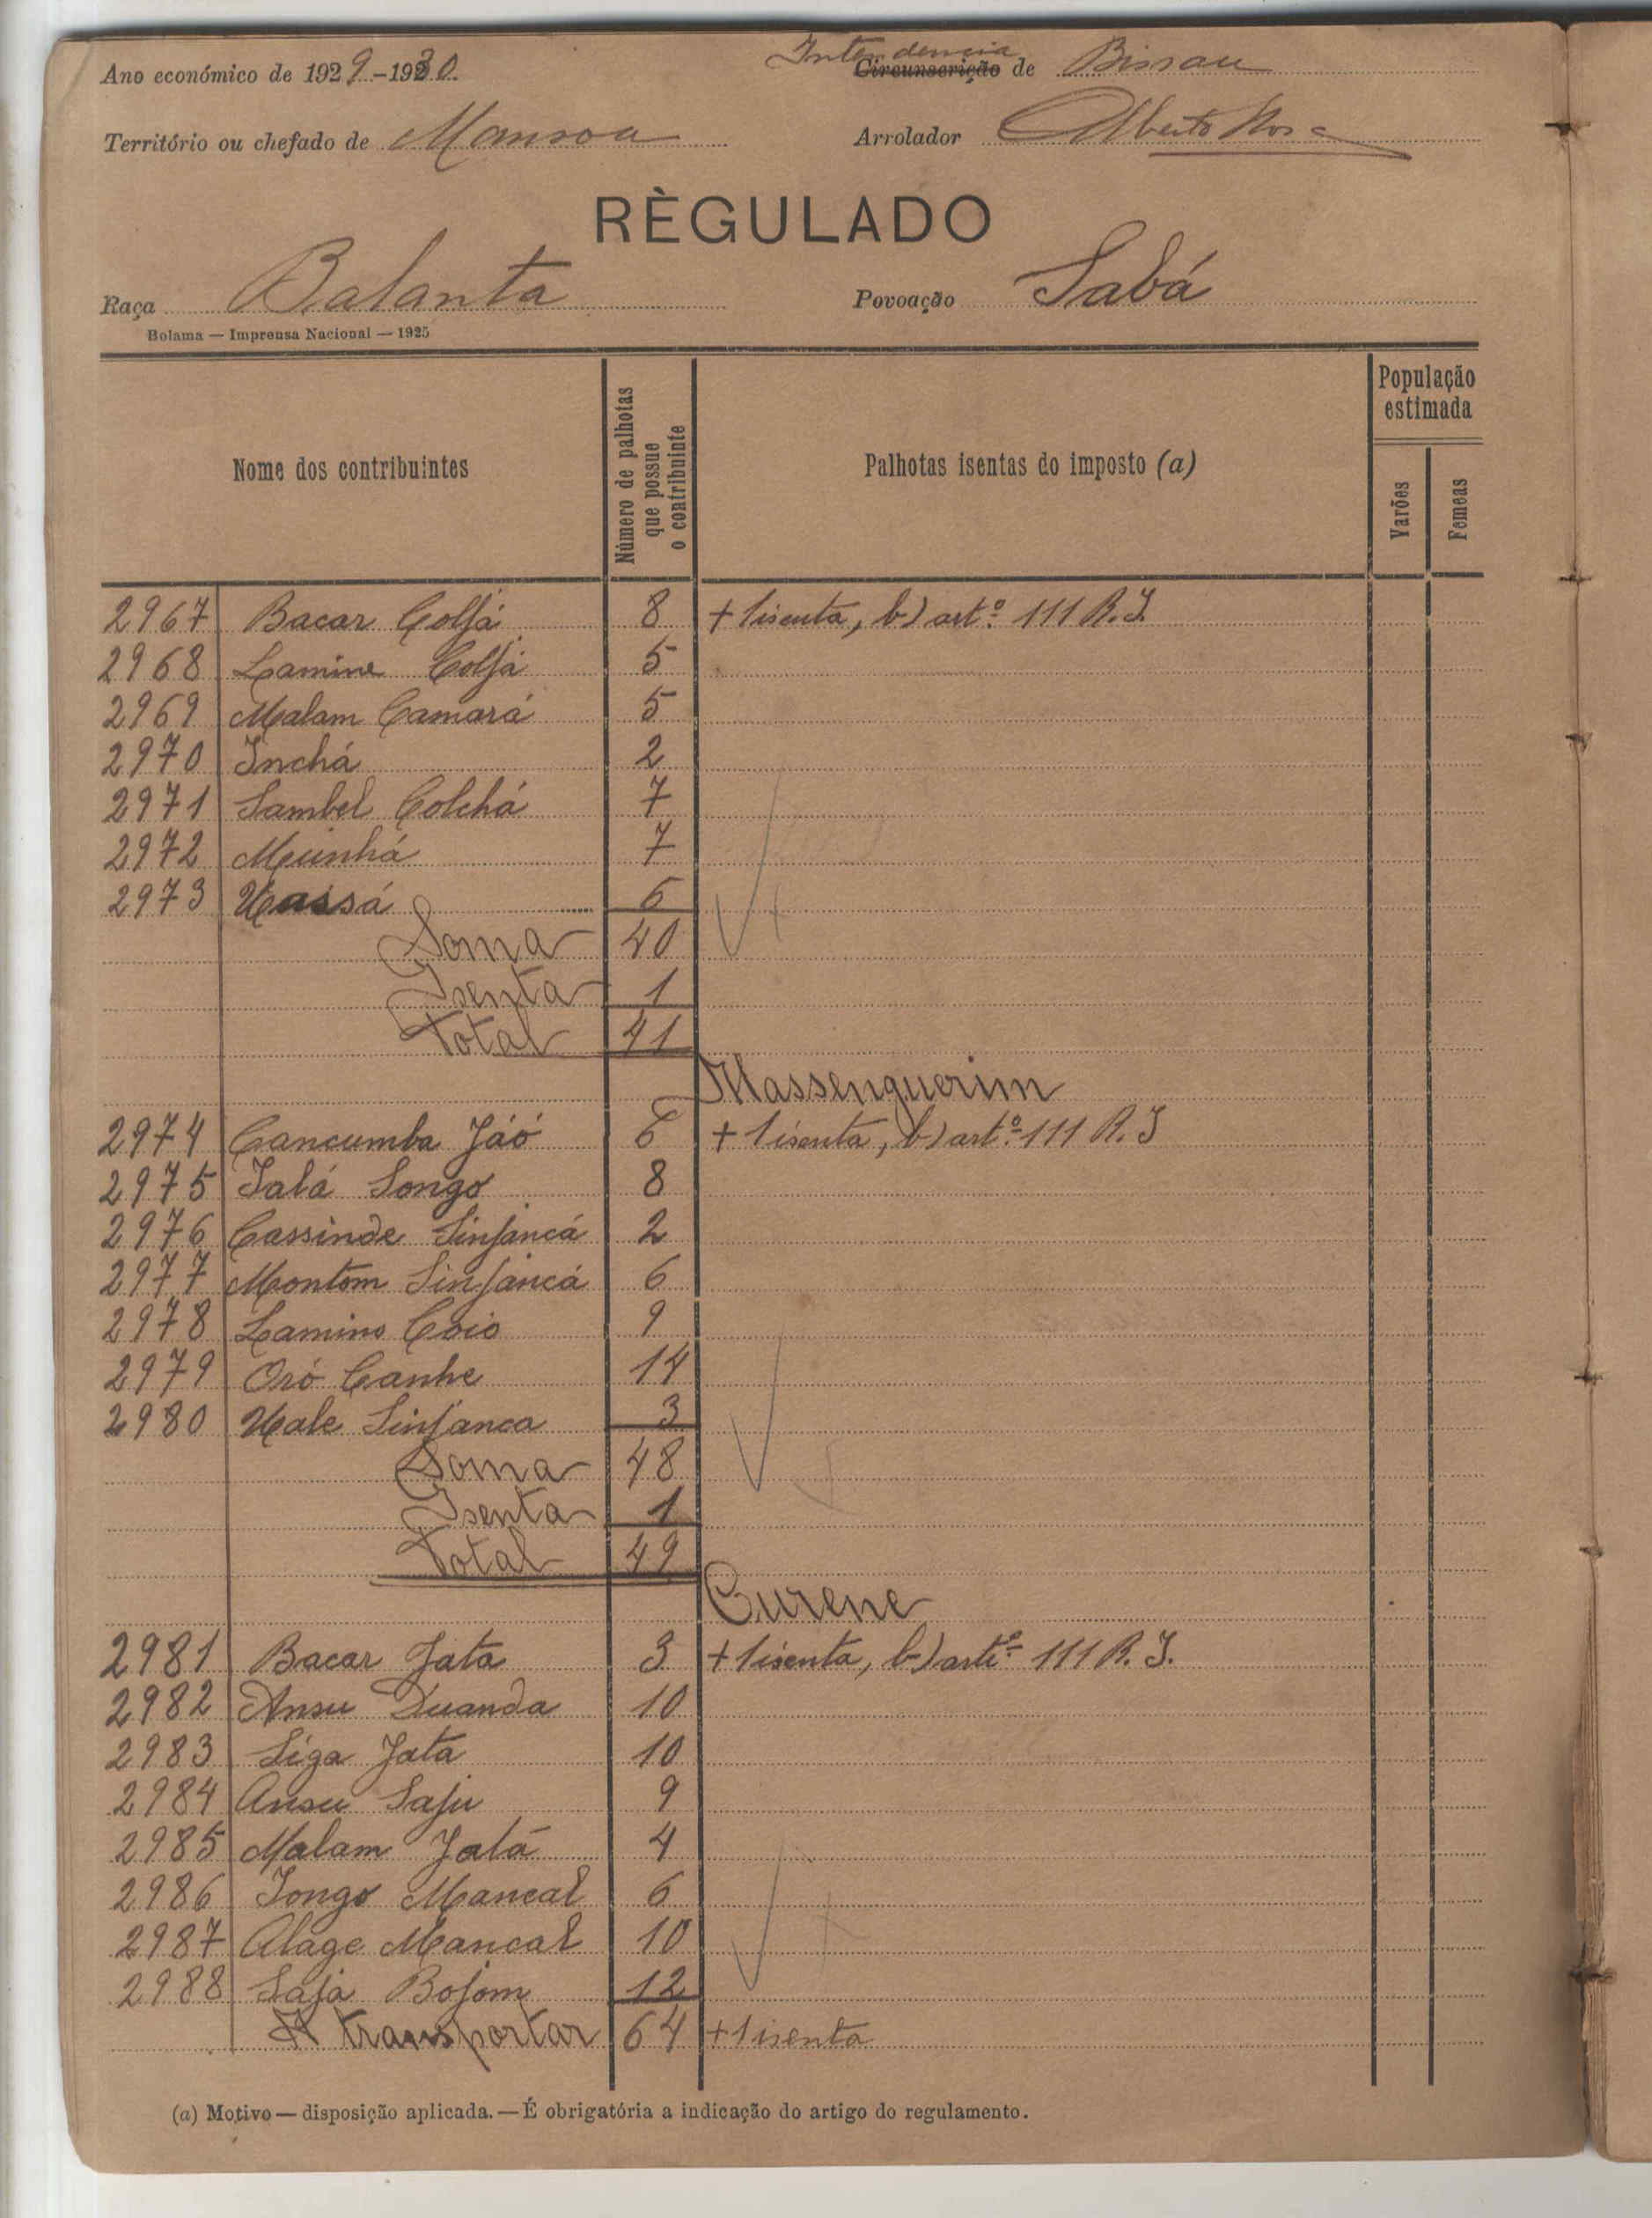 Ano económico de 1929-1930. Intendencia Circunscrição de Bissau
Território ou chefado de Mansoa Arrolador Alberto Rosa
RÈGULADO
Raça Balanta Povoação Sabá
Bolama — Imprensa Nacional — 1925
Nome dos contribuintes
Número de palhotas que possue o contribuinte
Palhotas isentas do imposto (a)
População estimada
Varões
Femeas
2967 Bacar Coljá 8 + 1 isenta, b) artº 111 R. I.
2968 Lamine Coljá 5
2969 Malam Camará 5
2970 Inchá 2
2971 Sambel Colchá 7
2972 Muinhá 7
2973 Uassá 6
Soma 40
Isenta 1
Total 41
Massenguerim
2974 Cancumba Jáó 6 + 1 isenta, b) artº 111 R. I
2975 Jalá Songo 8
2976 Cassinde Sinjancá 2
2977 Montom Sinjancá 6
2978 Lamino Coio 9
2979 Oró Canhe 14
2980 Uale Sinjanca 3
Soma 48
Isenta 1
Total 49
Curene
2981 Bacar Jata 3 + 1 isenta, b) artiº 111 R. I.
2982 Ansu Duanda 10
2983 Siga Jata 10
2984 Ansu Saju 9
2985 Malam Jatá 4
2986 Jongo Mancal 6
2987 Alage Mancal 10
2988 Saja Bojom 12
A transportar 64 + 1 isenta
(a) Motivo — disposição aplicada. — É obrigatória a indicação do artigo do regulamento.